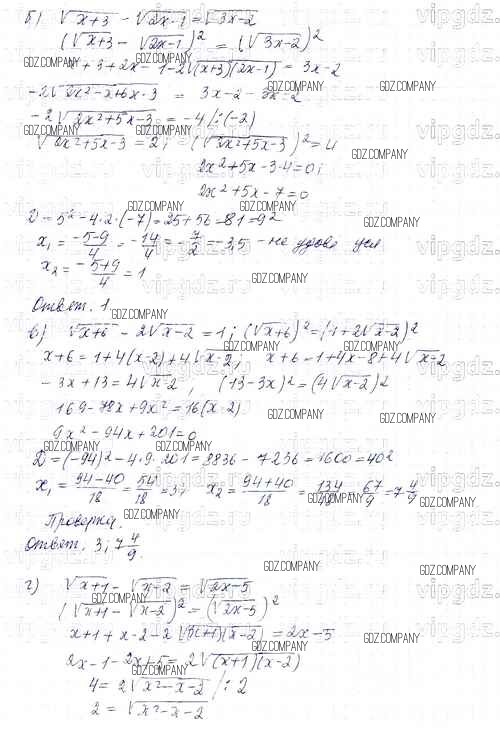 б) √x+3 - √2x-1 = √3x-2
(√x+3 - √2x-1)² = (√3x-2)²
x+3+2x-1-2√(x+3)(2x-1) = 3x-2
-2√2x²-x+6x-3 = 3x-2-3x-2
-2√2x²+5x-3 = -4 /:(-2)
√2x²+5x-3 = 2; (√2x²+5x-3)² = 4
2x²+5x-3-4=0;
2x²+5x-7=0
D = 5²-4·2·(-7) = 25+56 = 81 = 9²
x₁ = -5-9/4 = -14/4 = -7/2 = -3,5 - не удовл. усл.
x₂ = -5+9/4 = 1
Ответ. 1.
в) √x+6 - 2√x-2 = 1; (√x+6)² = (1+2√x-2)²
x+6 = 1+4(x-2)+4√x-2; x+6 = 1+4x-8+4√x-2
-3x+13 = 4√x-2; (13-3x)² = (4√x-2)²
169-78x+9x² = 16(x-2)
9x²-94x+201=0
D = (-94)²-4·9·201 = 8836-7236 = 1600 = 40²
x₁ = 94-40/18 = 54/18 = 3; x₂ = 94+40/18 = 134/18 = 67/9 = 7 4/9
Проверка.
Ответ. 3; 7 4/9.
г) √x+1 - √x-2 = √2x-5
(√x+1 - √x-2)² = (√2x-5)²
x+1+x-2-2√(x+1)(x-2) = 2x-5
2x-1-2x+5 = 2√(x+1)(x-2)
4 = 2√x²-x-2 /:2
2 = √x²-x-2
GDZ.COMPANY
vipgdz